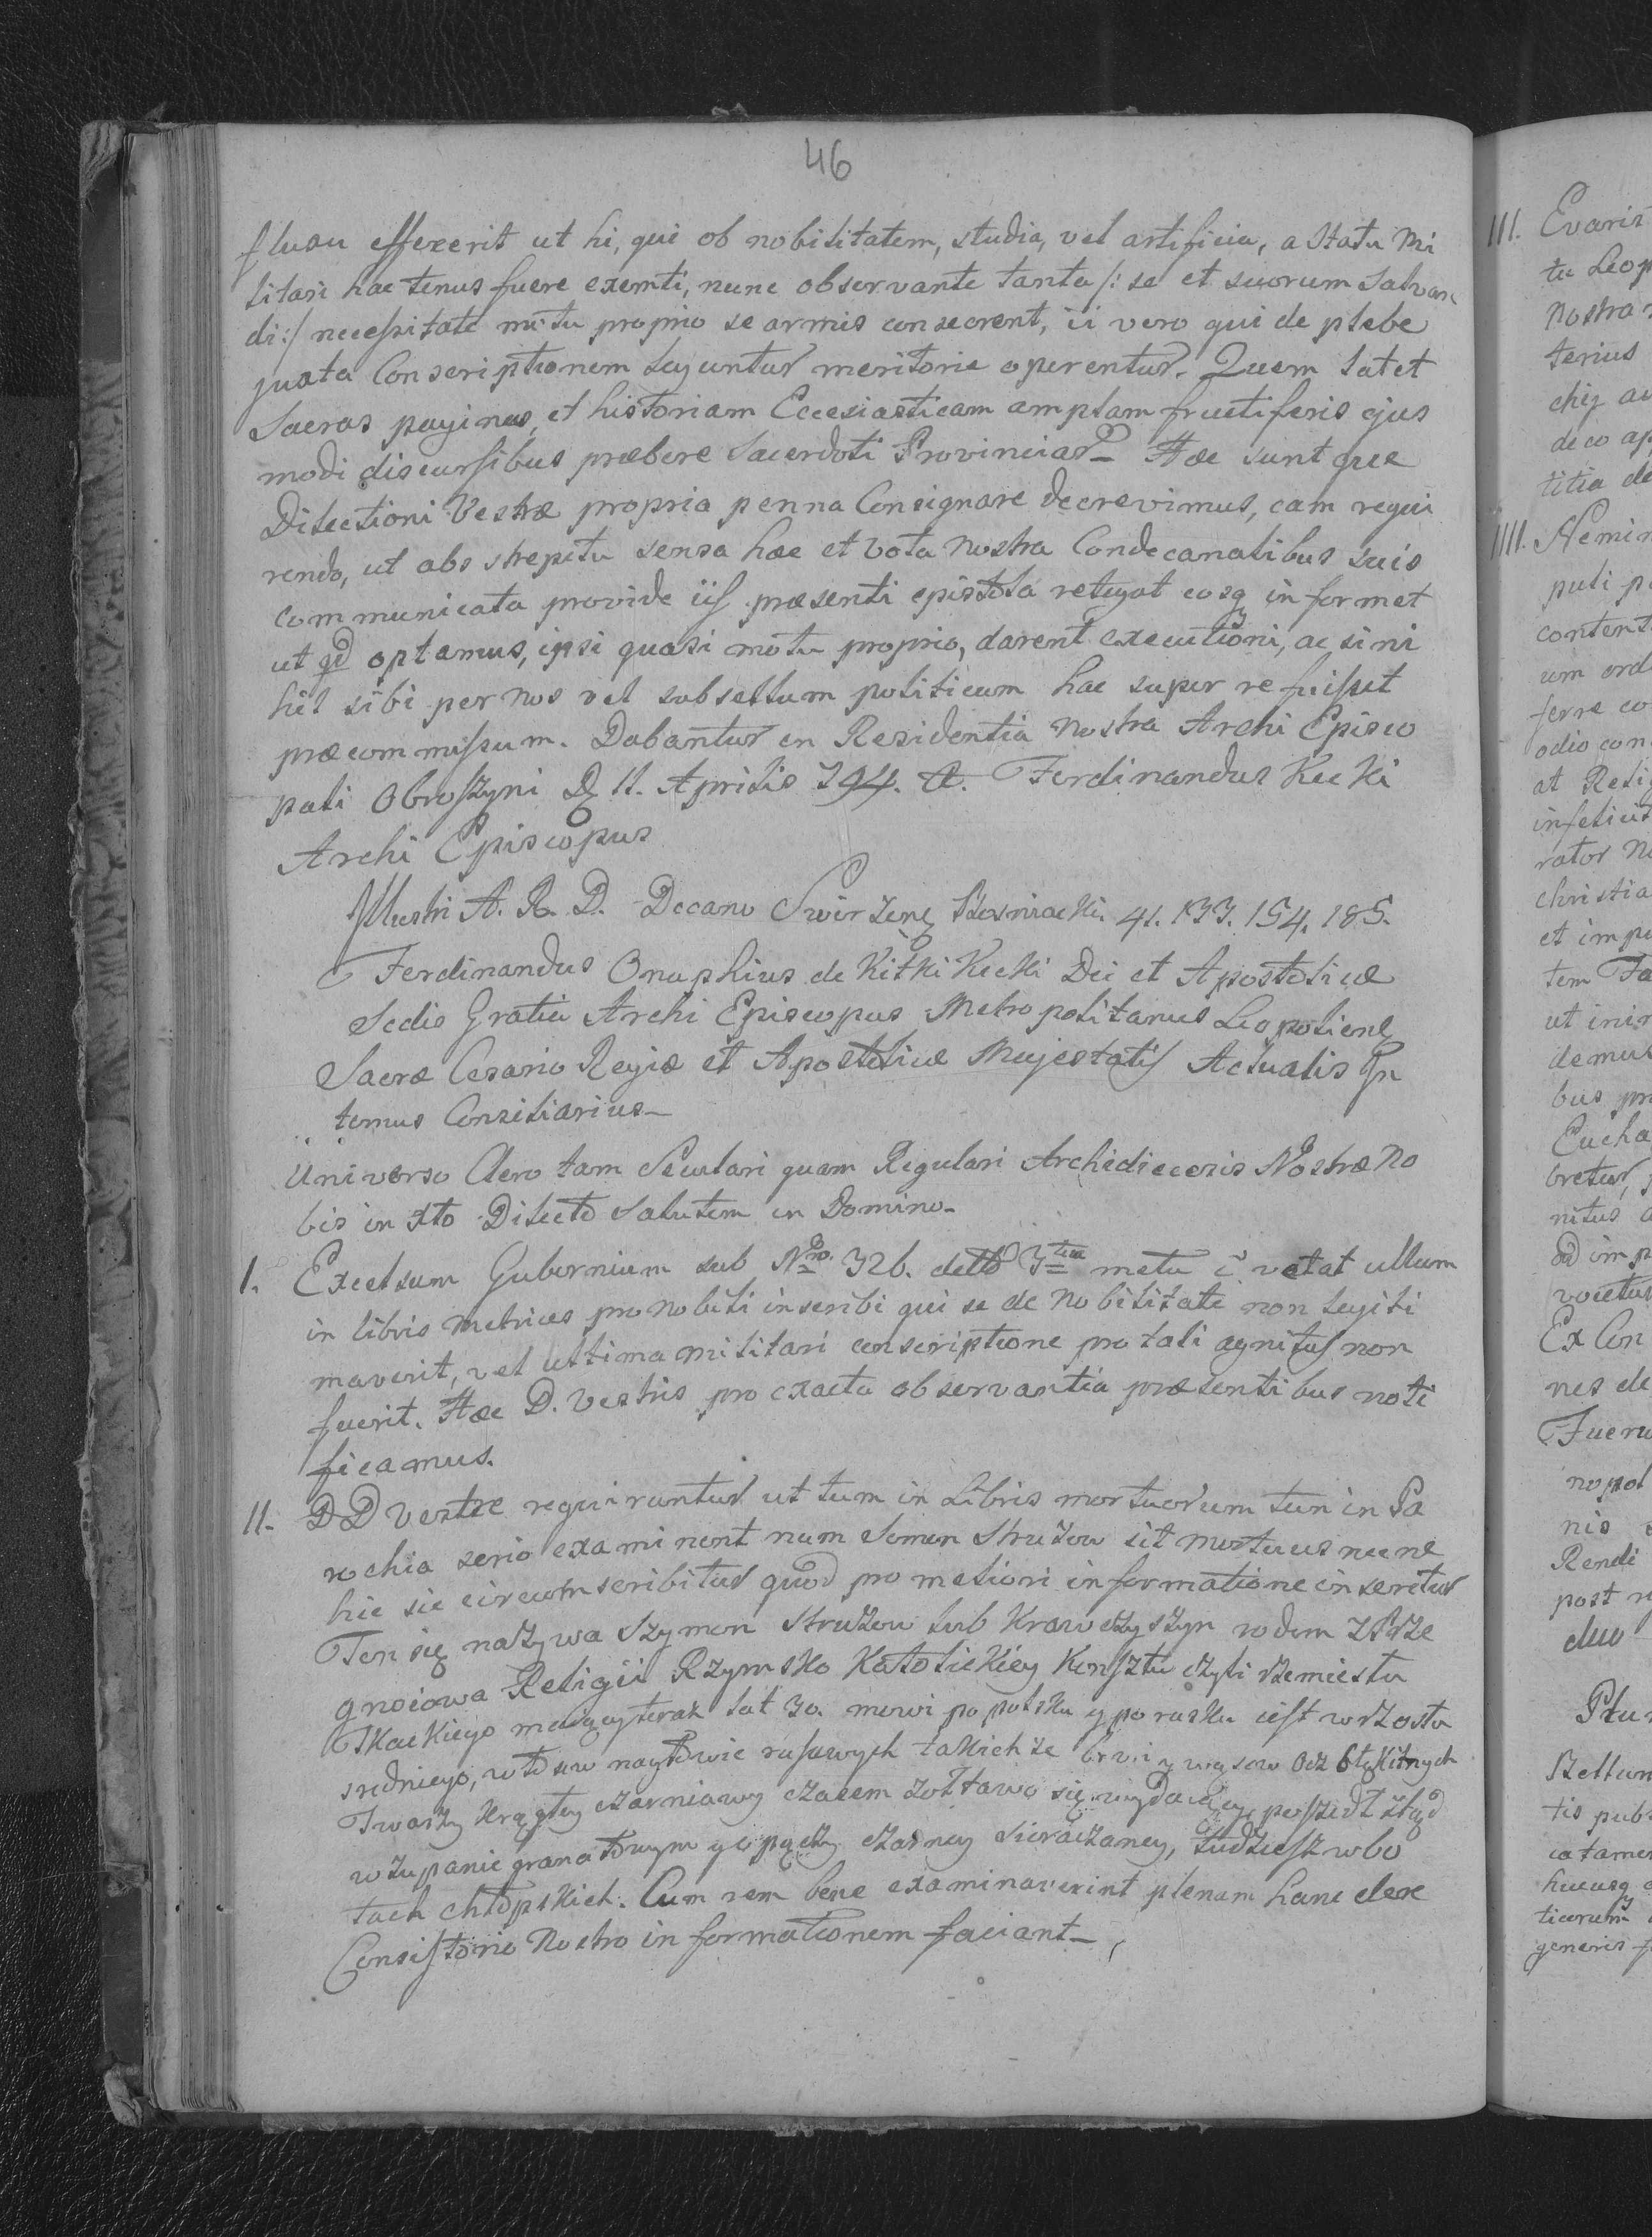 46
fluxu effexerit ut hi, qui ob nobilitatem, studia, vel artificia, a statu mi
litari hac tenus fuere exemti, nunc observante tanta /: se et suorum salvan
di :/ necessitate mótu proprio se armis consecrent, ii vero qui de plebe
juxta Conscriptionem leguntur meritorie operentur. Quem latet
Sacras paginas, et historiam Eccesiasticam amplam fructiferis ejus
modi discursibus præbere Sacerdoti Provinciam Hæc sunt que
Dilectioni Vestræ propria penna Consignare decrevimus, eam requi
rendo, ut abs strepitu sensa hæc et vota nostra Condecanalibus suis
communicata provide iis præsenti epistola retegat eosq informet
ut qd optamus, ipsi quasi motu proprio, darent executioni, ac si ni
hil sibi per nos vel subsellum politicum hac super re fuisset
præcommissum. Dabantur in Residentia nostra Archi Episco
pali Obroszyni D 11. Aprilis 794. A. Ferdinandus Kicki
Archi Episcopus
Illustri A. R. D. Decano Swirzens 41. 133. 154. 185.
Ferdinandus Onuphrius de Kitki Kicki Dei et Apostolicæ
Sedis Gratia Archi Episcopus Metropolitanus Leopoliens
Sacræ Cesario Regiæ et Apostolicæ Majestatis Actualis In
temus Consiliarius
Universo Clero tam Seculari quam Regulari Archidiecesis Nostræ No
bis in Xto Dilecto Salutem in Domino
I. Excelsum Gubernium sub Nro. 326. detto 3tia vetat ullum
in libris Metrices pro nobili inscribi qui se de Nobilitate non legiti
maverit, vel ultima militari conscriptione pro tali agnitus non
fuerit. Hæc D. vestris pro exacta observantia præsentibus noti
ficamus.
II. D D Vestræ requiruntur ut tum in Libris mortuorum tum in Pa
rochia serio examinent num Semen Struzow sit mortuus necne
hic sic circumscribitur quod pro meliori informatione inseretur
Ten się nazywa Szymon Struzow lub Krawczyszyn rodem z Prze
gnoiowa Religii Rzymsko Katolickiey Kunsztu czyli rzemiesta
Tkackiego maiący teraz lat 30. mowi po polsku y po rusku iest wrzostu
sredniego, wtosow nagłowie rusawych takich ze brwi y wąsow ocz błękitnych
Twarzy krągłey czarniawy czasem zołtawo się wydaiący, poszedł ztąd
w zupanie granatowym y opączy czarney sieraczaney, tudziesz w bo
tach chłopskich. Cum rem bene examinaverint plenam hanc dere
Consistorio Nostro informationem faciant
III. Evaris
tu Leop
nostra
terius
chiz
deco
titia de
IIII. Nemin
puli
content
um ord
ferre co
odio con
at Relig
infelicit
rator
christia
et imp
tem
ut inin
demus
bus
Eucha
bretur,
nitus
ad imp
vocetur
Ex Con
nes de
Fueru
nopol
nis
Rendi
post
duo
Plu
Szellum
tis pub
catamen
hucusq
ticorum
generis